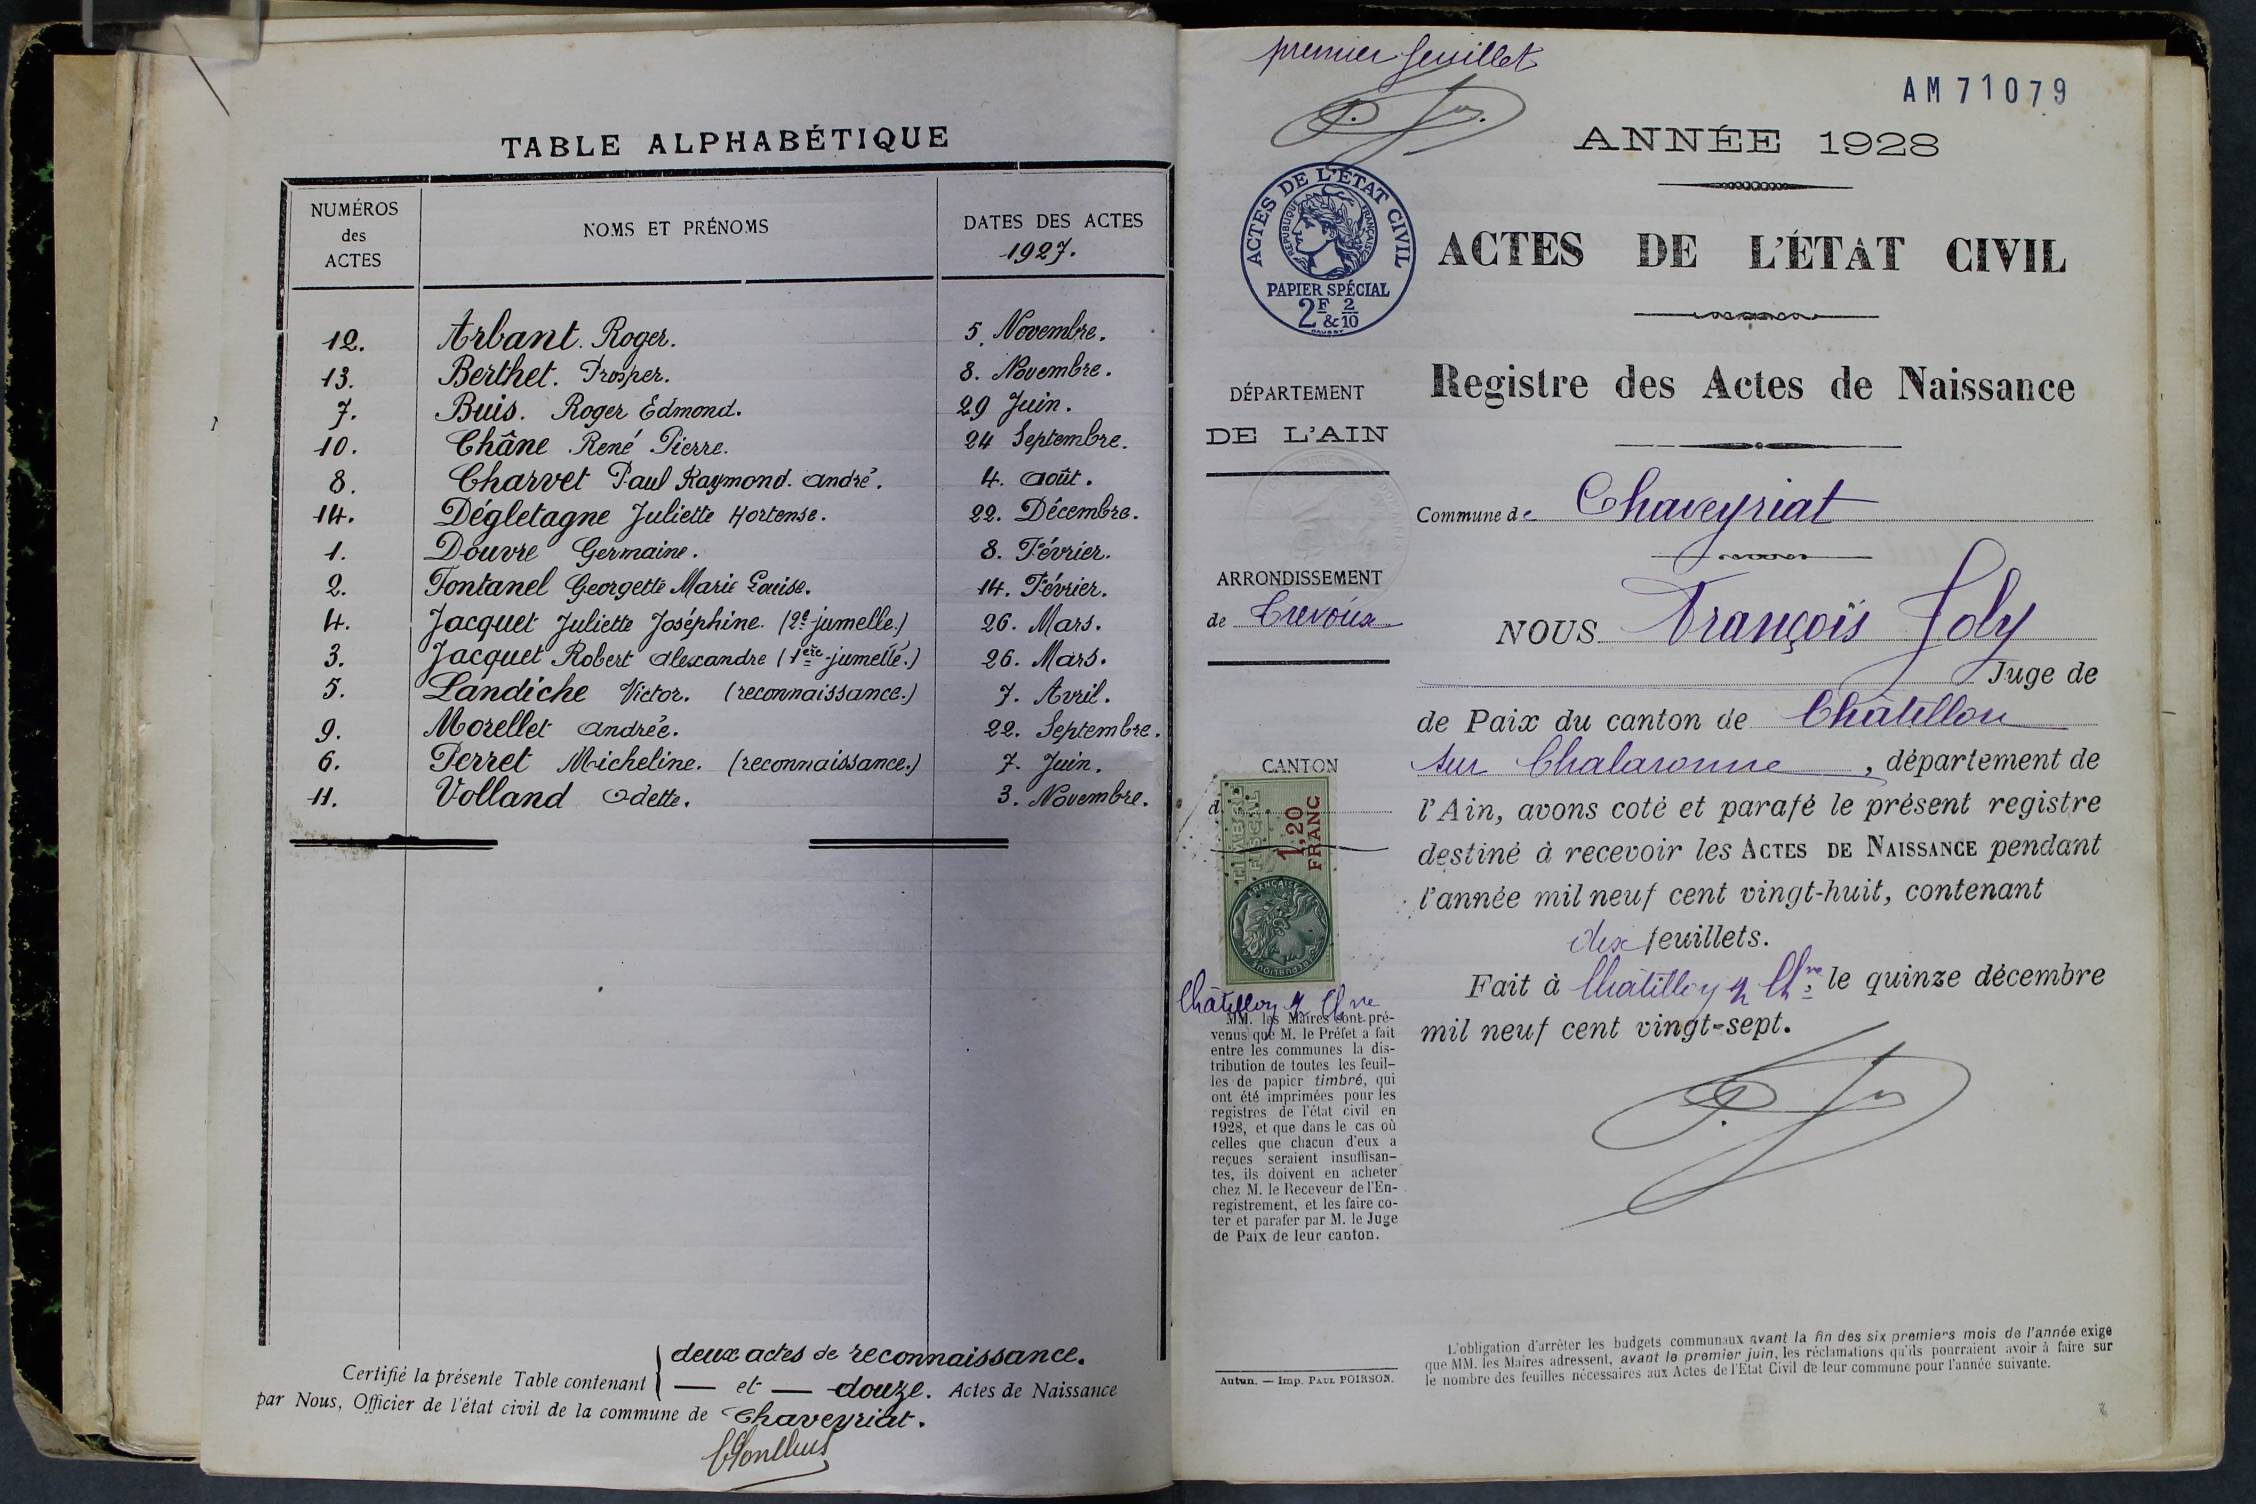 TABLE ALPHABÉTIQUE
NUMÉROS des ACTES
NOMS ET PRÉNOMS
DATES DES ACTES
1927.
12. Arbant. Roger. 5. Novembre.
13. Berthet. Prosper. 8. Novembre.
7. Buis. Roger Edmond. 29 Juin.
10. Châne René Pierre. 24 Septembre.
8. Charvet Paul Raymond. André. 4. Août.
14. Dégletagne Juliette Hortense. 22. Décembre.
1. Douvre Germaine. 8. Février.
2. Fontanel Georgette Marie Louise. 14. Février.
4. Jacquet Juliette Joséphine. (2e jumelle.) 26. Mars.
3. Jacquet Robert Alexandre (1ère jumelle.) 26. Mars.
5. Landiche Victor. (reconnaissance.) 7. Avril.
9. Morellet Andrée. 22. Septembre.
6. Perret Micheline. (reconnaissance.) 7. Juin.
11. Volland Odette. 3. Novembre.
deux actes de reconnaissance.
Certifié la présente Table contenant — et — douze. Actes de Naissance
par Nous, Officier de l'état civil de la commune de Chaveyriat.
premier feuillet
AM 71079
ANNÉE 1928
ACTES DE L'ÉTAT CIVIL
RÉPUBLIQUE FRANÇAISE
PAPIER SPÉCIAL
2F & 2/10
ACTES DE L'ÉTAT CIVIL
Registre des Actes de Naissance
DÉPARTEMENT
DE L'AIN
Commune de Chaveyriat
ARRONDISSEMENT
de Trevoux
NOUS François Joly
Juge de
de Paix du canton de Châtillon
sur Chalaronne, département de
l'Ain, avons coté et parafé le présent registre
destiné à recevoir les ACTES DE NAISSANCE pendant
l'année mil neuf cent vingt-huit, contenant
dix feuillets.
Fait à Châtillon s/ Chne le quinze décembre
mil neuf cent vingt-sept.
CANTON
d
TIMBRE FISCAL
1,20 FRANC
Châtillon s/ Chne
MM. les Maires sont pré-
venus que M. le Préfet a fait
entre les communes la dis-
tribution de toutes les feuil-
les de papier timbré, qui
ont été imprimées pour les
registres de l'état civil en
1928, et que dans le cas où
celles que chacun d'eux a
reçues seraient insuffisan-
tes, ils doivent en acheter
chez M. le Receveur de l'En-
registrement, et les faire co-
ter et parafer par M. le Juge
de Paix de leur canton.
Autun. — Imp. PAUL POIRSON.
L'obligation d'arrêter les budgets communaux avant la fin des six premiers mois de l'année exige
que MM. les Maires adressent, avant le premier juin, les réclamations qu'ils pourraient avoir à faire sur
le nombre des feuilles nécessaires aux Actes de l'Etat Civil de leur commune pour l'année suivante.